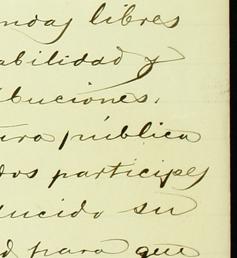 ndas libres
abilidad y
buciones.
ura pública
dos participes
ucido su
d para que